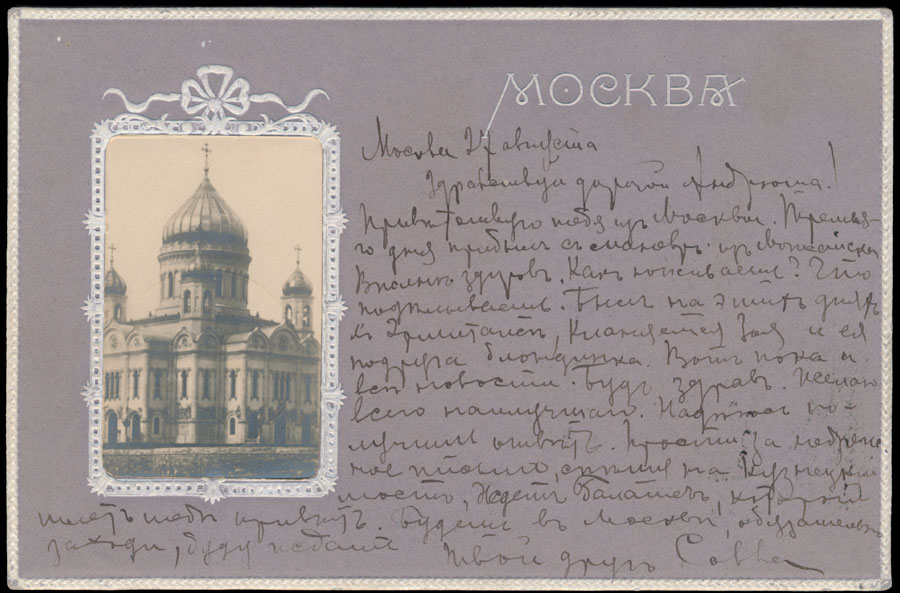 МОСКВА
Москва 27 августа
Здравствуй дорогой Андрюша!
Приветствую тебя из Москвы. Третья-
го дня прибылъ съ маневр. из Можайска
Вполнѣ здоровъ. Какъ поживаешь? Что
поделываешь. Былъ на этихъ дняхъ
въ Эрмитажѣ, Кланяется Зоя и ея
подруга блондинка. Вотъ пока и
всѣ новости. Будь здравъ. Желаю
всего наилучшаго. Надѣюсь по-
лучить отвѣтъ. Прости за небреж-
ное письмо, спѣшу на Кузнецкій
мостъ, Ждетъ Балашевъ, который
шлетъ тебѣ привѣтъ. Будешь въ Москвѣ, обязательно
заходи, буду ждать Твой другъ Савва